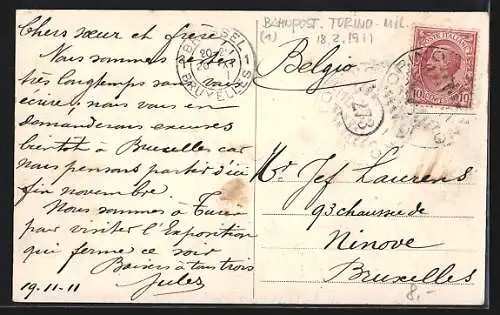 Chers sœur et frère
Nous sommes restés
très longtemps sans vous
écrire, mais vous en
demanderons excuses
bientôt à Bruxelles car
nous pensons partir d'ici
fin novembre.
Nous sommes à Turin
pour visiter l'Exposition
qui ferme ce soir
Baisers à tous trois
Jules
19-11-11
BRUXELLES
BAHNPOST. TORINO-MIL.
(1) 18.2.1911
Belgio
POSTE ITALIANE
10 CENTESIMI 10
273
Mr Jef Laurens
93 chaussée de
Ninove
Bruxelles
8,-